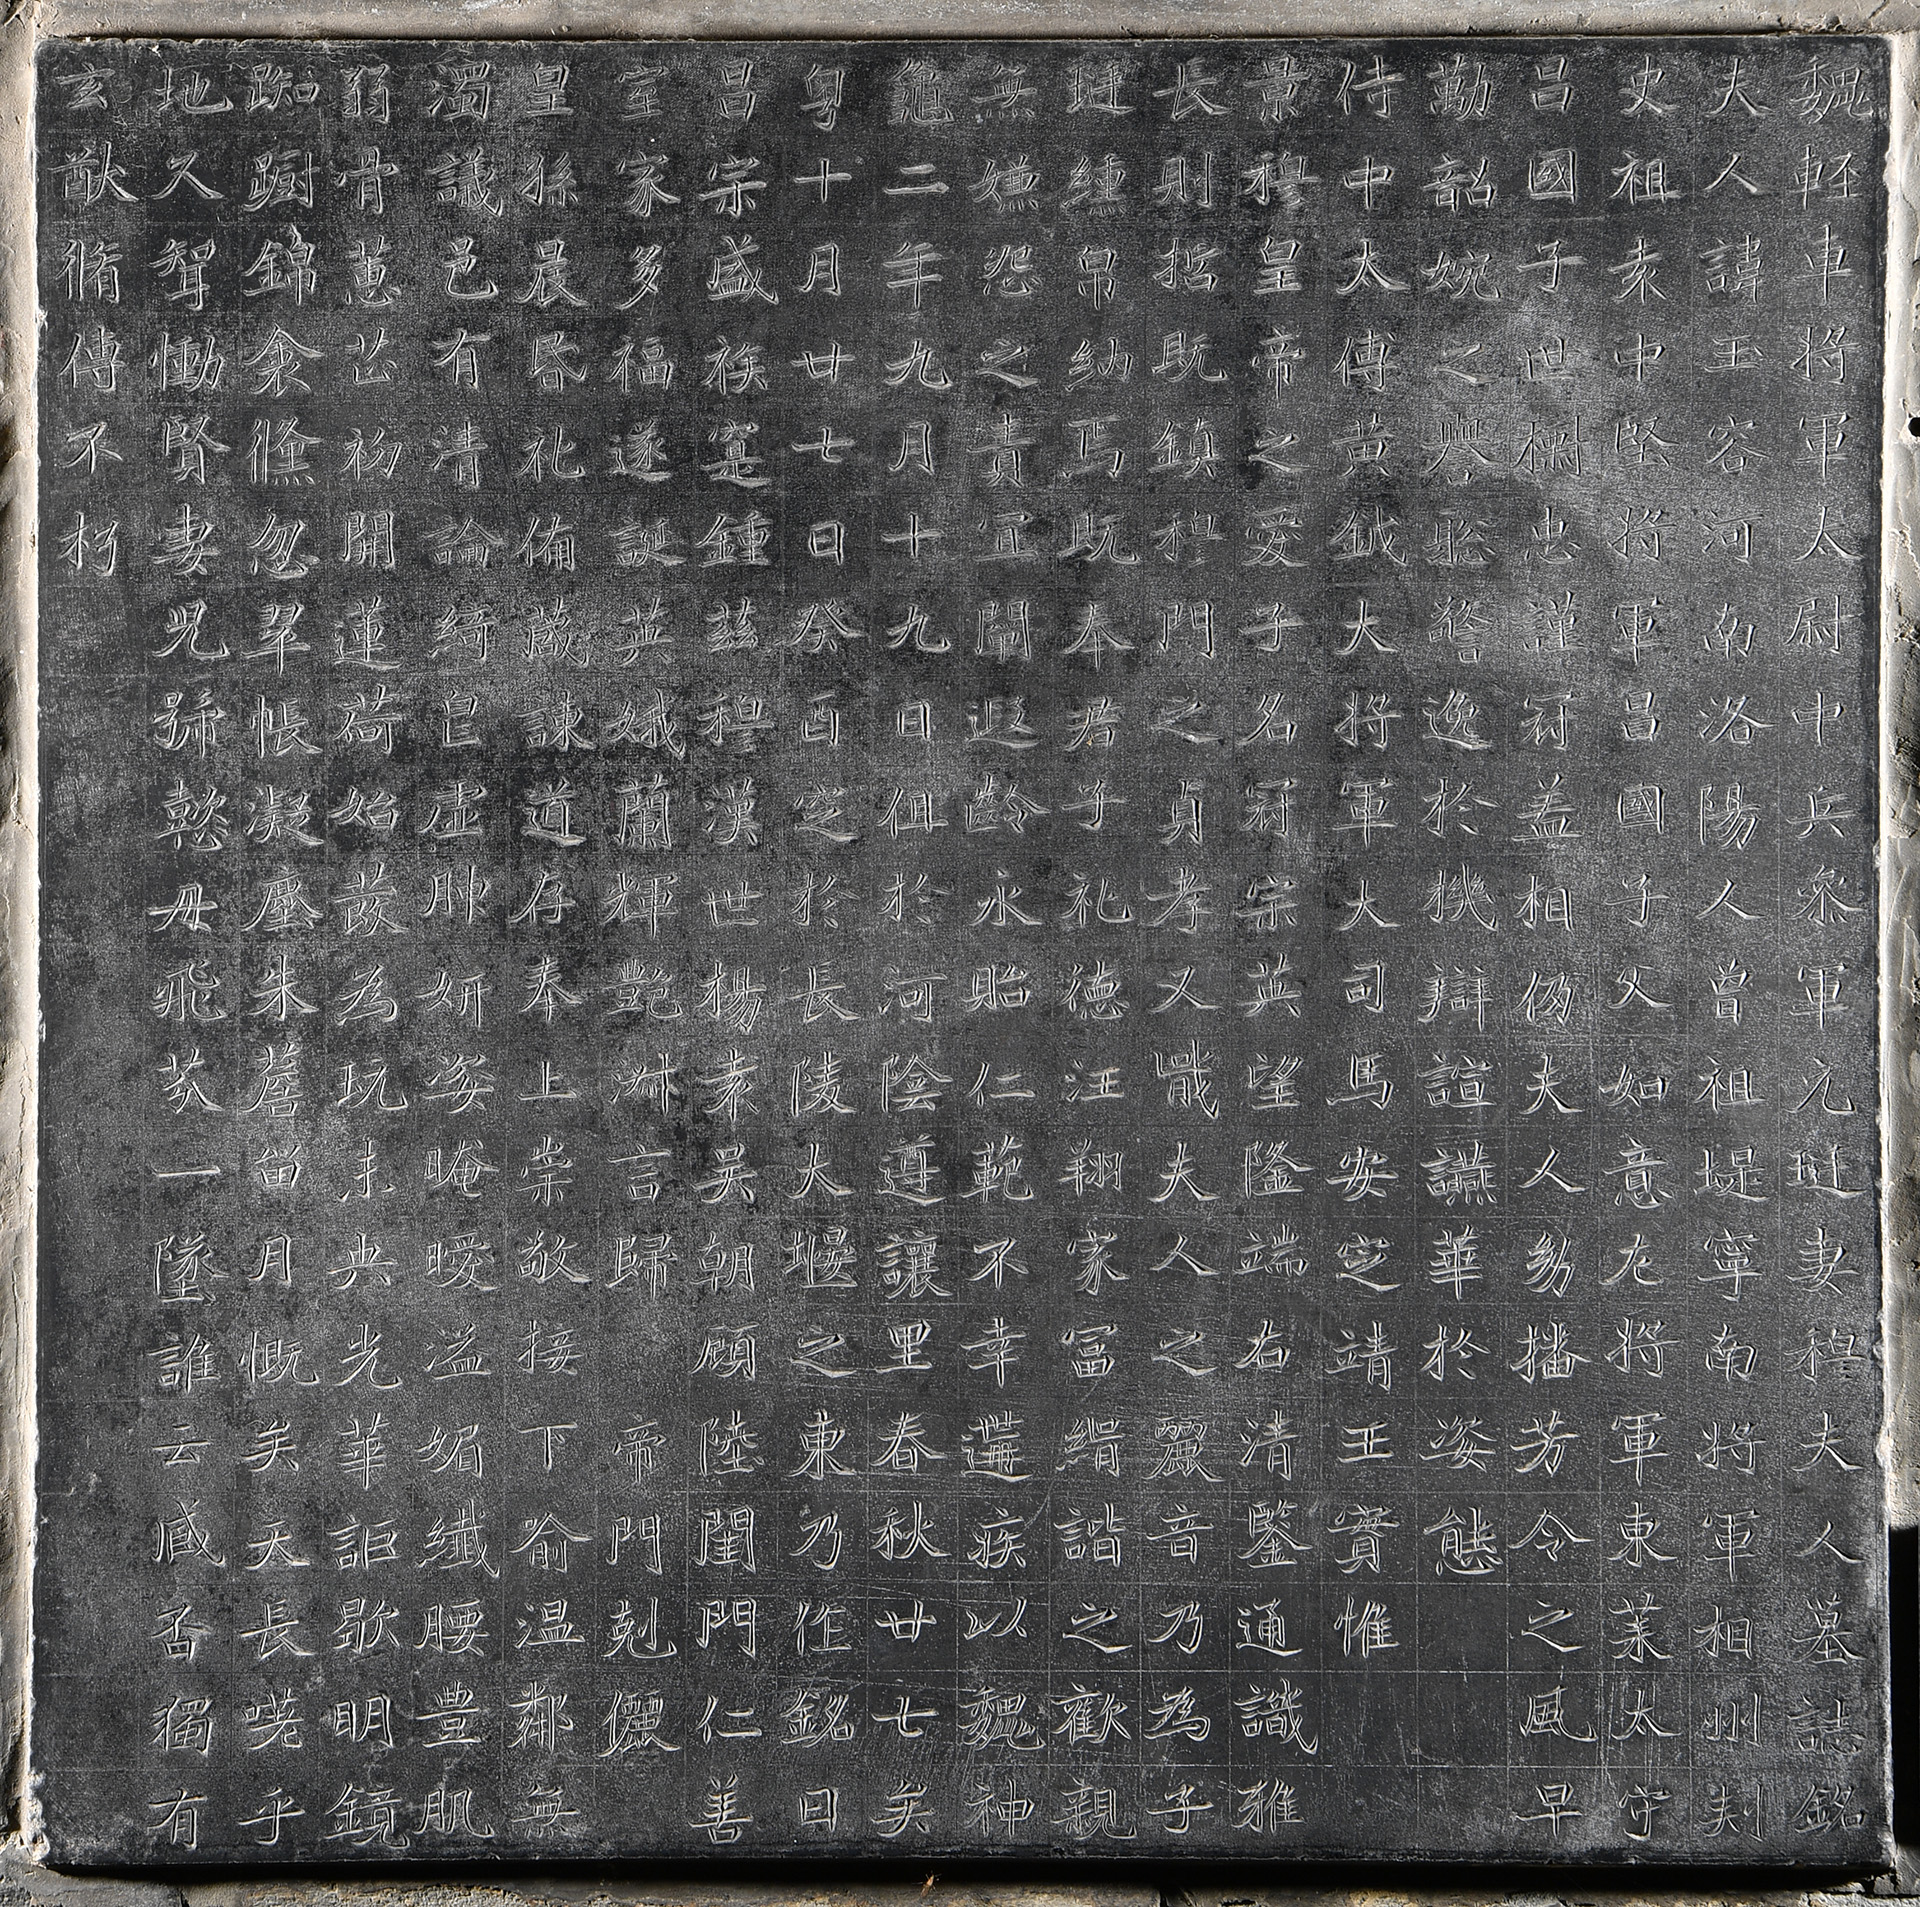 魏輕車將軍太尉中兵參軍元珽妻穆夫人墓誌銘
夫人諱玉容河南洛陽人曾祖堤寧南將軍相州刾
史祖袁中堅將軍昌國子父如意左將軍東萊太守
昌國子世樹忠謹冠蓋相仍夫人幼播芳令之風早
勤韶婉之譽聡警逸於機辯諠讌華於姿態
侍中太傅黃鉞大將軍大司馬安定靖王實惟
景穆皇帝之愛子名冠宗英望隆端右清鑒通識雅
長則哲既鎮穆門之貞孝又戢夫人之麗音乃為子
珽纁帛納焉既奉君子礼德汪翔家富緝諧之歡親
無嫌怨之責宜閙遐齡永貽仁範不幸遘疾以魏神
龜二年九月十九日徂於河陰遵讓里春秋廿七矣
粤十月廿七日癸酉定於長陵大堰之東乃作銘曰
昌宗盛族寔鍾茲穆漢世楊袁吳朝顧陸閨門仁善
室家多福遂誕英娥蘭輝艷淋言歸　帝門剋儷
皇孫晨昏礼備箴諫道存奉上崇敬接下喻温鄰無
濁議邑有清論綺皃虛朏妍姿晻曖溢媚纖腰豊肌
弱骨蕙芷初開蓮荷始茇為玩未央光華詎歇明鏡
踟躕錦衾儵忽翠帳凝塵朱簷留月慨矣天長嘆乎
地久智慟賢妻咒號慜毋飛芬一墜誰云臧否獨有
玄猷脩傳不朽